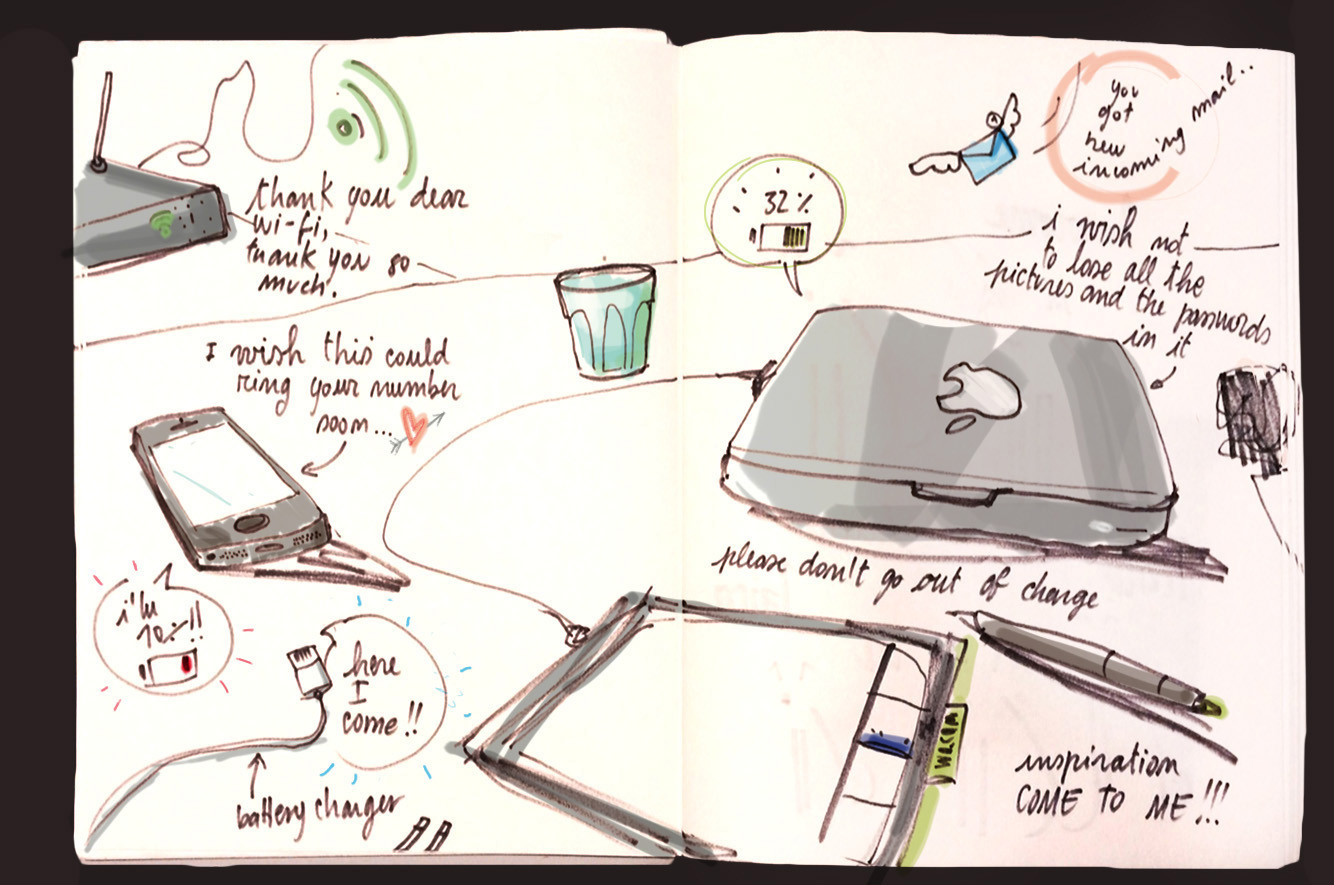 thank you dear
wi-fi,
thank you so
much.
I wish this could
ring your number
soon...
i'm
10%!!
here
I
come!!
battery charger
32%
you
got
new
incoming mail..
i wish not
to lose all the
pictures and the passwords
in it
please don't go out of charge
WACOM
inspiration
COME TO ME!!!